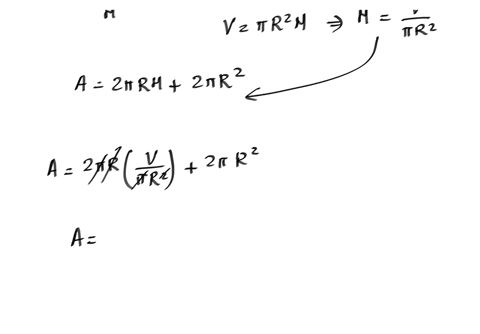 H
V = πR²H ⇒ H = V/πR²
A = 2πRH + 2πR²
A = 2πR(V/πR²) + 2πR²
A =